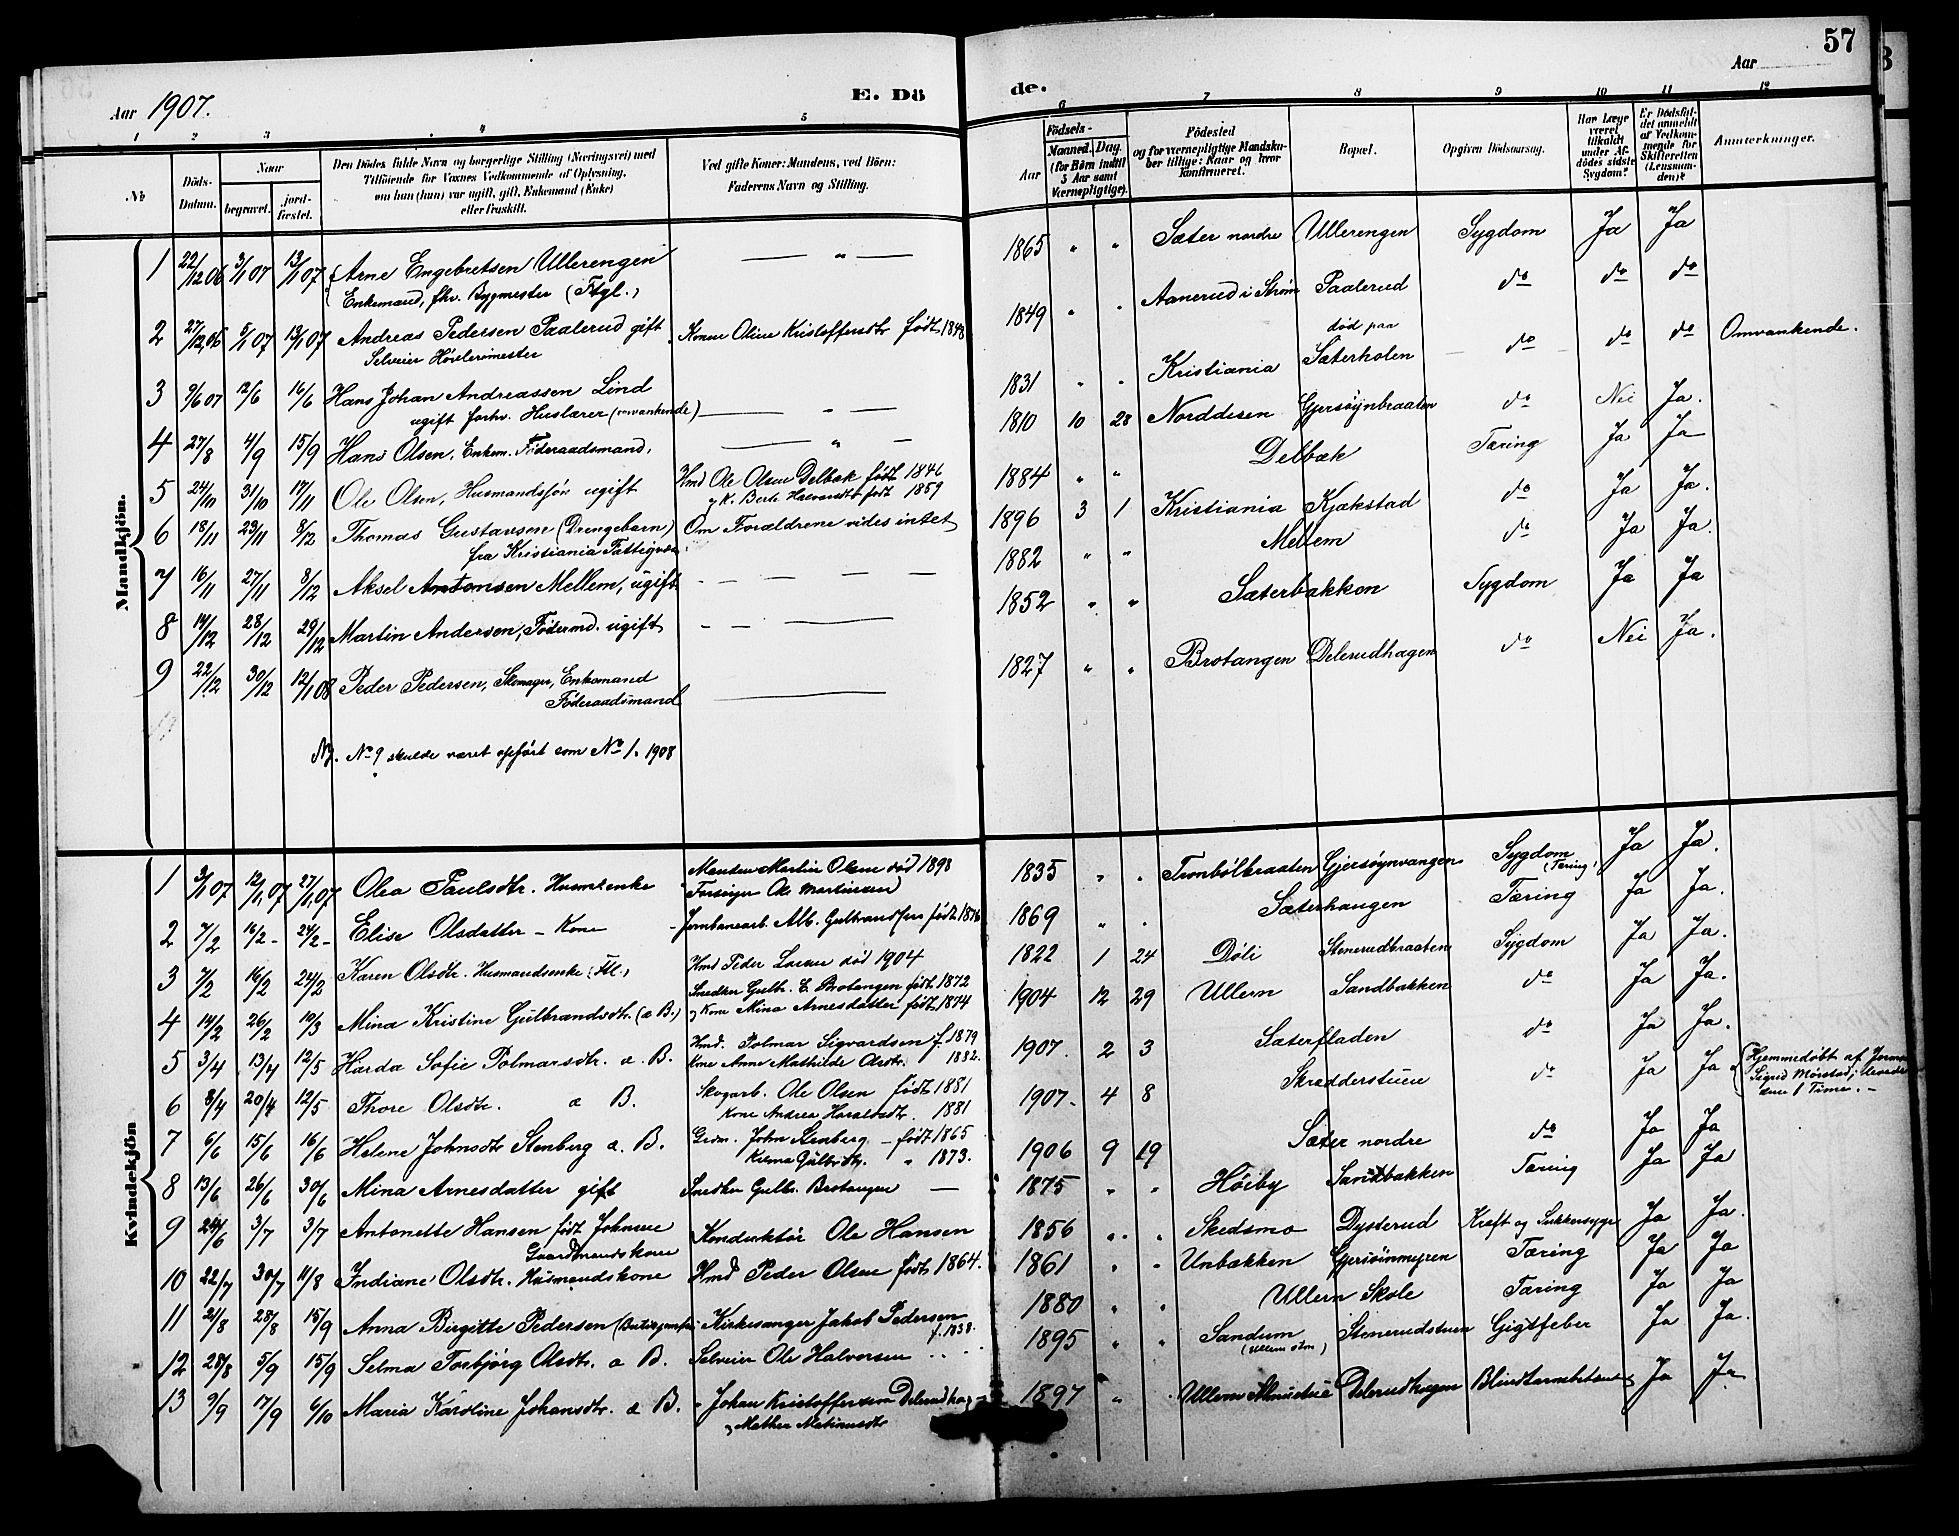 57
Aar 1907.
E. Dö
de.
Aar
1 2 3 4 5 6 7 8 9 10 11 12
No
Döds-Datum.
Naar
begravet.
jord-fæstet.
Den Dödes fulde Navn og borgerlige Stilling (Næringsvei) med
Tilföiende for Voxnes Vedkommende af Oplysning,
om han (hun) var ugift, gift, Enkemand (Enke)
eller fraskilt.
Ved gifte Koner: Mandens, ved Börn:
Faderens Navn og Stilling.
Födsels-
Aar
Maaned. Dag.
(for Börn indtil
5 Aar samt
Værnepligtige).
Födested
og for værnepligtige Mandska-
ber tillige: Naar og hvor
konfirmeret.
Bopæl.
Opgiven Dödsaarsag.
Har Læge
været
tilkaldt
under Af-
dödes sidste
Sygdom?
Er Dödsfal-
det anmeldt
af Vedkom-
mende for
Skifteretten
(Lensman-
den)?
Anmærkninger.
Mandkjön.
1 22/12 06 3/1 07 13/1 07 Arne Engebretsen Ullerengen — " — 1865 " " Sæter nordre Ullerengen Sygdom Ja Ja
Enkemand, fhv. Bygmester (Ftgl.)
2 27/12 06 5/1 07 13/1 07 Andreas Pedersen Paalerud gift Konen Oline Kristoffersdtr født 1848 1849 " " Aanerud i Strøm Paalerud do do do
Selveier Høvlerimester
3 9/6 07 12/6 16/6 Hans Johan Andreassen Lind — " — 1831 " " Kristiania død paa Sæterholen do do do Omvankende.
ugift forhv. Huslærer (omvankende)
4 27/8 4/9 15/9 Hans Olsen, Enkem. Føderaadsmand, — " — 1810 10 28 Norddesen Gjersøynbraaten do Nei Ja.
5 24/10 31/10 17/11 Ole Olsen, Husmandssøn ugift Hmd Ole Olsen Delbæk født 1846 1884 " " Delbæk Tæring Ja Ja
og K. Berte Halvorsdtr født 1859
6 18/11 23/11 8/12 Thomas Gustavsen (Drengebarn) Om Forældrene vides intet 1896 3 1 Kristiania Kjækstad do Ja Ja.
fra Kristiania Fattigvæs.
7 16/11 27/11 8/12 Aksel Antonsen Mellem, ugift — — — — 1882 " " Mellem do Ja Ja.
8 14/12 28/12 29/12 Martin Andersen, Fødermd. ugift — — — 1852 " " Sæterbakken Sygdom Ja Ja
9 22/12 30/12 12/1 08 Peder Pedersen, Skomager, Enkemand — 1827 " " Brotangen Delerudhagen do Nei Ja.
Føderaadsmand
No 9 skulde været opført som No 1. 1908
Kvindekjön
1 3/1 07 12/1 07 27/1 07 Olea Paulsdtr. Husmenke Manden Martin Olsen død 1898 1835 " " Tronbølbraaten Gjersøynvangen Sygdom (Tæring) Ja Ja.
Forsørger Ole Martinsen
2 7/2 16/2 - 24/2 - Elise Olsdatter - Kone Jernbanearb. Alb. Gulbrandsen født 1876 1869 " " Sæterhaugen Tæring Ja Ja.
3 7/2 16/2 24/2 Karen Olsdtr. Husmandsenke (Fl.) Hmd Peder Larsen død 1904 1822 1 24 Døli Stenerudbraaten Sygdom Ja Ja.
4 14/2 26/2 10/3 Mina Kristine Gulbrandsdtr. (æ B.) Snedker Gulb. E. Brotangen født 1872 1904 12 29 Ullern Sandbakken do Ja Ja.
og Kone Mina Arnesdatter født 1874
5 3/4 13/4 12/5 Harda Sofie Polmarsdtr. æ. B. Hmd. Polmar Sigvardsen f. 1879 1907. 2 3 Sæterfladen do Ja Ja.
Kone Anne Mathilde Olsdtr. 1882.
6 8/4 20/4 12/5 Thore Olsdtr. æ B. Skogarb. Ole Olsen født 1881 1907. 4 8 Skrædderstuen do Ja Ja Hjemmedøbt af Jorm.
Kone Andrea Haraldsdtr. 1881 Sigrid Mørstad; levede
den 1 Time. -
7 6/6 15/6 16/6 Helene Johnsdtr Stenberg æ. B. Grdm. John Stenberg - født 1865 1906 9 19 Sæter nordre do Ja Ja
Gulbrdtr. " 1873.
8 13/6 26/6 30/6 Mina Arnesdatter gift Snedker Gulb. Brotangen — 1875 " " Høiby Sandbakken Tæring Ja Ja
9 24/6 3/7 3/7 Antonette Hansen født Johnsen Konduktør Ole Hansen 1856 " " Skedsmo Dysterud Kræft og Sukkersyge Ja Ja.
Gaardmandskone
10 22/7 30/7 11/8 Indiane Olsdtr. Husmandskone Hmd Peder Olsen født 1864. 1861 " " Unbakken Gjersøinmyren Tæring Ja Ja
11 24/8 28/8 15/9 Anna Birgitte Pedersen Kirkesanger Jakob Pedersen 1880 " " Ullern Skole Tæring Ja Ja
f. 1838.
12 28/8 5/9 15/9 Selma Torbjørg Olsdtr. æ B. Selveier Ole Halvorsen 1895 " " Sandum Stenerudstuen Gigtfeber Ja Ja.
13 9/9 17/9 6/10 Maria Karoline Johansdtr. æ B. Johan Kristoffersen Delerudhag 1897 " Ullern Delerudhagen Ja Ja
og Mathea Matinusdtr